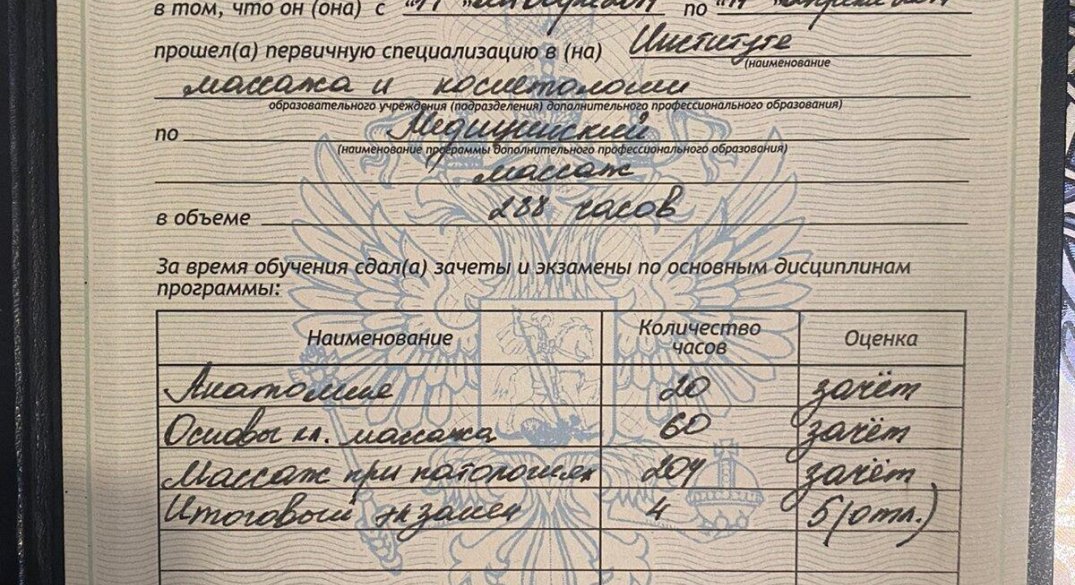 в том, что он (она) с по
прошел(а) первичную специализацию в (на) Институте
(наименование
массажа и косметологии
образовательного учреждения (подразделения) дополнительного профессионального образования)
по Медицинский
(наименование программы дополнительного профессионального образования)
массаж
в объеме 288 часов
За время обучения сдал(а) зачеты и экзамены по основным дисциплинам
программы:
Наименование Количество часов Оценка
Анатомия 20 зачёт
Основы кл. массажа 60 зачёт
Массаж при патологиях 204 зачёт
Итоговый экзамен 4 5 (отл.)